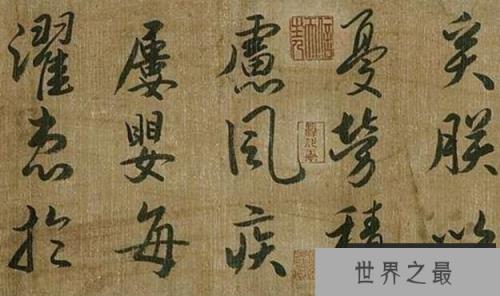 矣朕以
憂勞積
慮風疾
屢嬰每
濯患於
世界之最